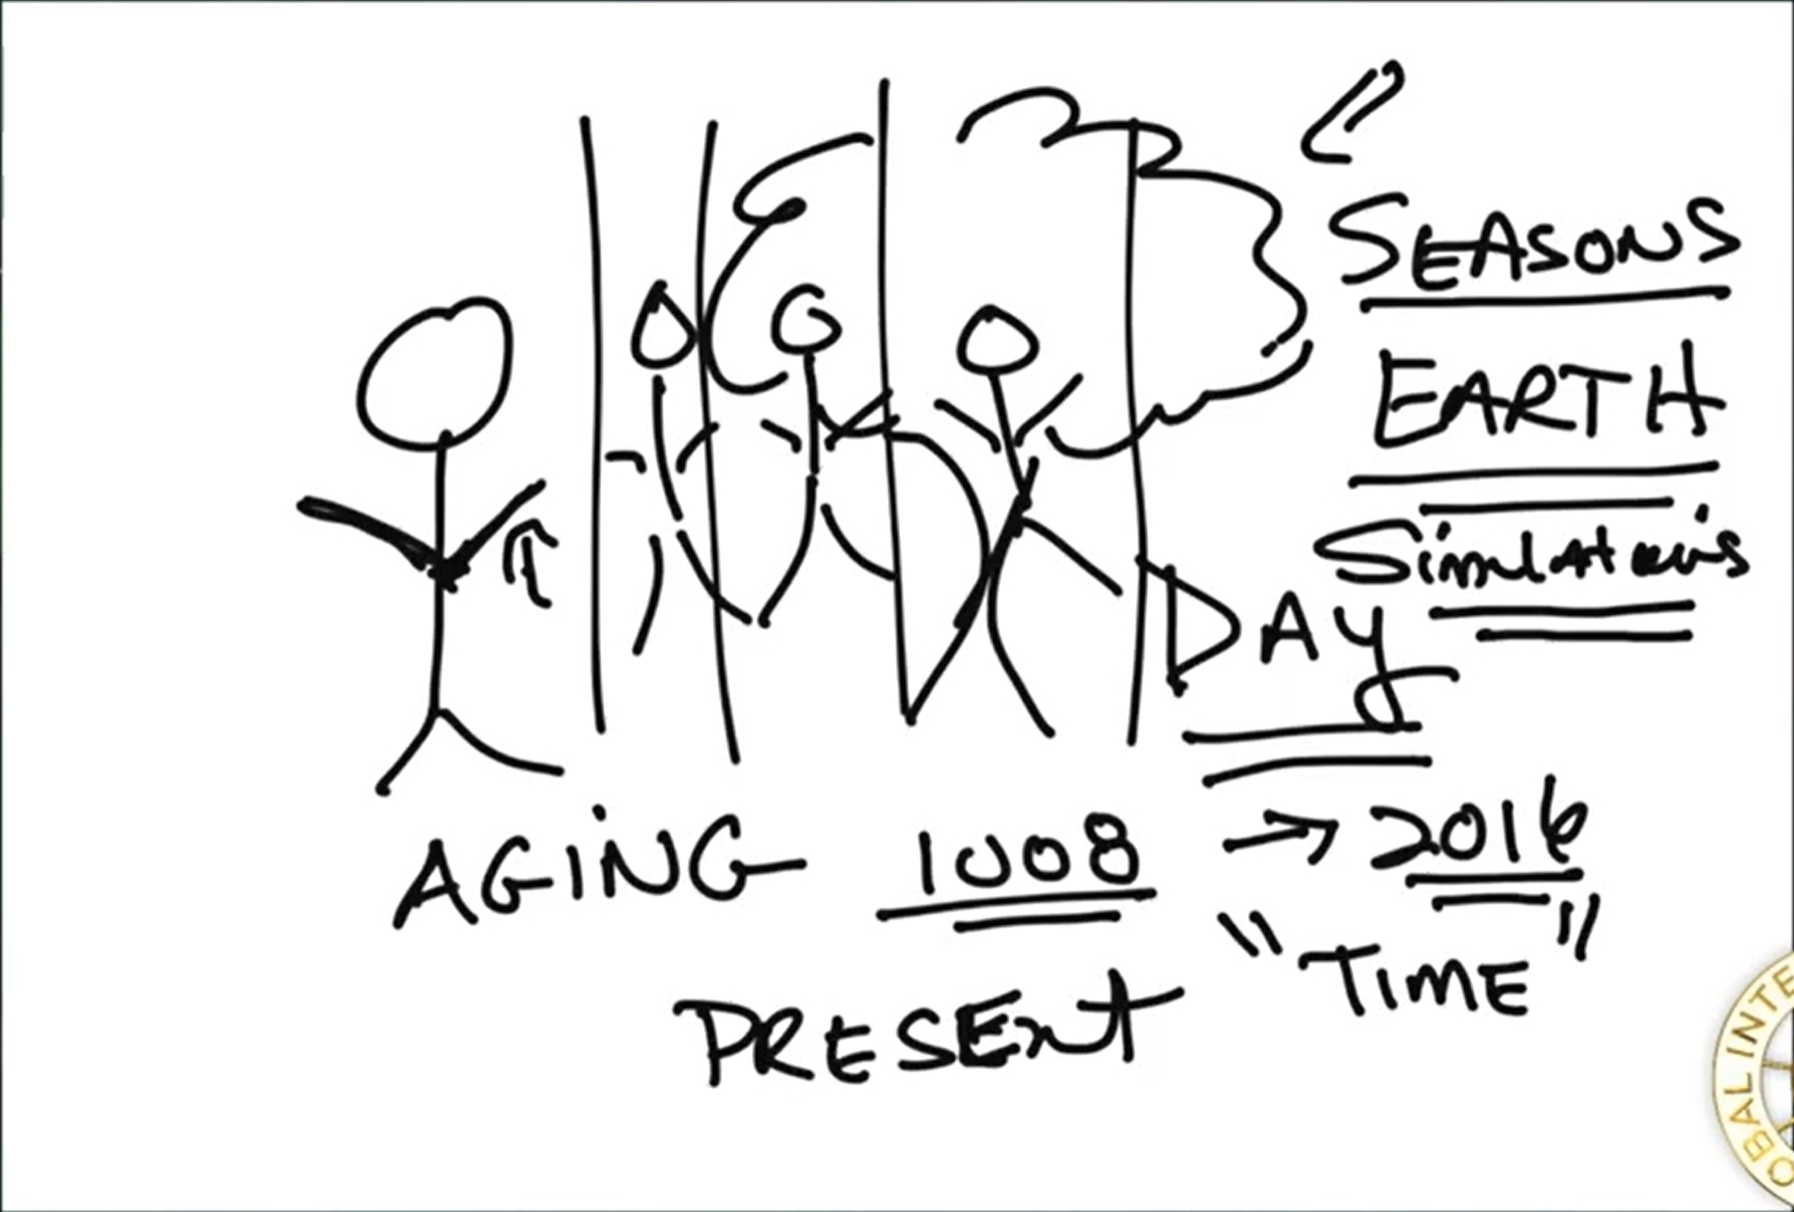 SEASONS
EARTH
Simulations
DAY
AGING 1008 → 2016
"TIME"
PRESENT
OBAL INTE